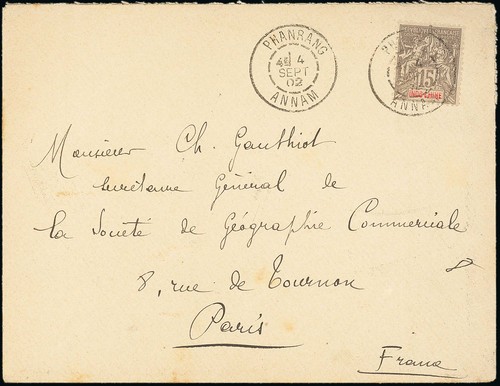 PHANRANG
4
SEPT
02
ANNAM
15
INDO-CHINE
ANNA
Monsieur Ch. Gauthiot
Secrétaire Général de
la Société de Géographie Commerciale
8, rue de Tournon
Paris
France